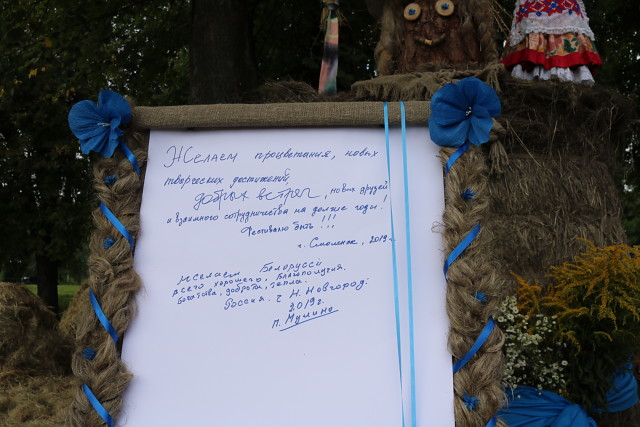 Желаем процветания, новых
творческих достижений,
добрых встреч, новых друзей
и взаимного сотрудничества на долгие годы!
Фестивалю быть!!!
г. Смоленск, 2019 г.
Желаем Белоруссии
всего хорошего, благополучия.
Богатства, доброты, тепла.
Россия. г Н. Новгород.
2019г.
п. Мулино